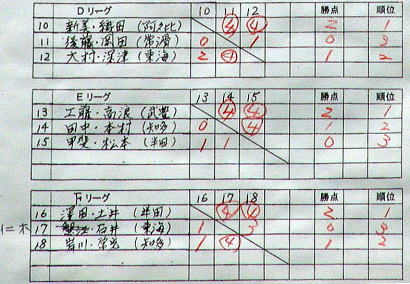 Dリーグ 10 11 12 勝点 順位
10 新美・織田 (阿久比) ④ ④ 2 1
11 後藤・岡田 (常滑) 0 1 0 3
12 大村・深津 (東海) 2 ④ 1 2
Eリーグ 13 14 15 勝点 順位
13 工藤・高浪 (武豊) ④ ④ 2 1
14 田中・本村 (知多) 0 ④ 1 2
15 甲斐・松本 (半田) 1 1 0 3
Fリーグ 16 17 18 勝点 順位
16 澤田・土井 (半田) ④ ④ 2 1
17 石井 (東海) 1 3 0 3
18 岩川・ (知多) 1 ④ 1 2